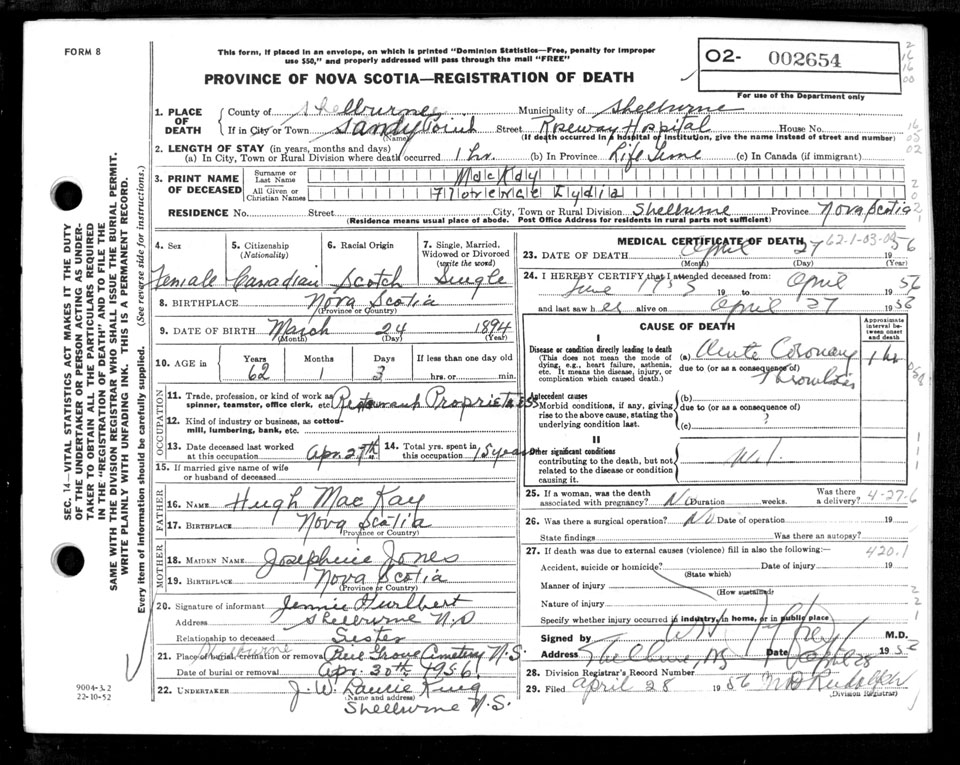 FORM 8
This form, if placed in an envelope, on which is printed "Dominion Statistics—Free, penalty for improper
use $50," and properly addressed will pass through the mail "FREE"
PROVINCE OF NOVA SCOTIA—REGISTRATION OF DEATH
02- 002654
For use of the Department only
1. PLACE OF DEATH
County of Shelburne Municipality of Shelburne
If in City or Town Sandy Point Street Roseway Hospital House No.
(Name) (If death occurred in a hospital or institution, give the name instead of street and number)
2. LENGTH OF STAY (in years, months and days)
(a) In City, Town or Rural Division where death occurred 1 hr. (b) In Province Life Time (c) In Canada (if immigrant)
3. PRINT NAME OF DECEASED
Surname or Last Name MacKay
All Given or Christian Names Florence Lydia
RESIDENCE No. Street City, Town or Rural Division Shelburne Province Nova Scotia
(Residence means usual place of abode. Post Office Address for residents in rural parts not sufficient)
4. Sex Female
5. Citizenship (Nationality) Canadian
6. Racial Origin Scotch
7. Single, Married, Widowed or Divorced (write the word) Single
8. BIRTHPLACE Nova Scotia
(Province or Country)
9. DATE OF BIRTH March 24 1894
(Month) (Day) (Year)
10. AGE in Years 62 Months 1 Days 3 If less than one day old hrs. or min.
OCCUPATION
11. Trade, profession, or kind of work as spinner, teamster, office clerk, etc. Restaurant Proprietress
12. Kind of industry or business, as cotton-mill, lumbering, bank, etc.
13. Date deceased last worked at this occupation Apr. 27th
14. Total yrs. spent in this occupation 15 years
15. If married give name of wife or husband of deceased
FATHER
16. NAME Hugh MacKay
17. BIRTHPLACE Nova Scotia
(Province or Country)
MOTHER
18. MAIDEN NAME Josephine Jones
19. BIRTHPLACE Nova Scotia
(Province or Country)
20. Signature of informant Jennie Hurlbert
Address Shelburne N.S
Relationship to deceased Sister
21. Place of burial, cremation or removal Pine Grove Cemetery N.S.
Shelburne
Date of burial or removal Apr. 30th 1956
22. UNDERTAKER J.W. Laurie King
(Name and address)
Shelburne N.S.
MEDICAL CERTIFICATE OF DEATH
62-1-03-03
23. DATE OF DEATH April 27 1956
(Month) (Day) (Year)
24. I HEREBY CERTIFY that I attended deceased from:
June 1955 19 to April 1956
and last saw her alive on April 27 1956
CAUSE OF DEATH
Approximate interval between onset and death
I
Disease or condition directly leading to death
(This does not mean the mode of dying, e.g., heart failure, asthenia, etc. It means the disease, injury, or complication which caused death.)
(a) Acute Coronary 1 hr
due to (or as a consequence of) Thrombosis
Antecedent causes
Morbid conditions, if any, giving rise to the above cause, stating the underlying condition last.
(b)
due to (or as a consequence of)
(c) ?
II
Other significant conditions
contributing to the death, but not related to the disease or condition causing it.
25. If a woman, was the death associated with pregnancy? No Duration weeks. Was there a delivery?
4-27-6
26. Was there a surgical operation? No Date of operation 19
State findings Was there an autopsy?
27. If death was due to external causes (violence) fill in also the following:—
420.1
Accident, suicide or homicide? Date of injury 19
(State which)
Manner of injury
(How sustained)
Nature of injury
Specify whether injury occurred in industry, in home, or in public place
Signed by M.D.
Address Shelburne, NS Date April 28 1956
28. Division Registrar's Record Number
29. Filed April 28 1956
(Division Registrar)
9004-3.2
22-10-52
SEC. 14—VITAL STATISTICS ACT MAKES IT THE DUTY
OF THE UNDERTAKER OR PERSON ACTING AS UNDER-
TAKER TO OBTAIN ALL THE PARTICULARS REQUIRED
IN THE "REGISTRATION OF DEATH" AND TO FILE THE
SAME WITH THE DIVISION REGISTRAR WHO SHALL ISSUE THE BURIAL PERMIT.
WRITE PLAINLY WITH UNFADING INK. THIS IS A PERMANENT RECORD.
Every item of information should be carefully supplied. (See reverse side for instructions.)